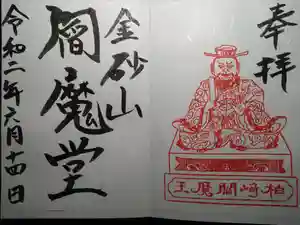 奉拝
王魔閻崎柏
金砂山
閻魔堂
令和二年六月十四日